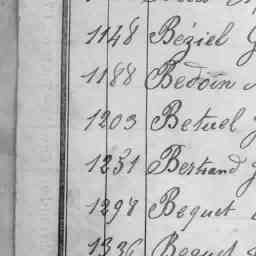 1148 Béziel
1188 Bedoin
1203 Betuel
1251 Bertrand
1298 Bequet
1336 Bequet